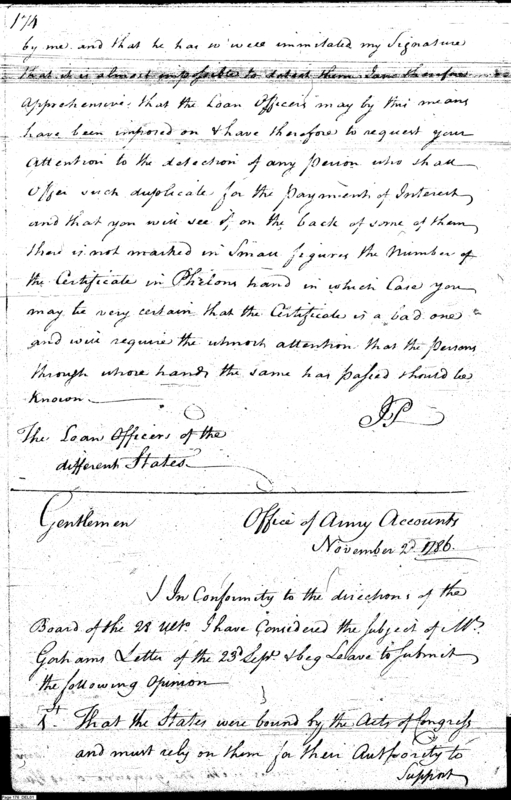 174
by me and that he has so well immitated my Signature
that it is almost impossible to detect them I am therefore
apprehensive that the Loan Officers may by this means
have been imposed on & have therefore to request your
Attention to the detection of any Person who shall
Offer such duplicate for the Payment of Interest
and that you will see if on the back of some of them
there is not marked in Small figures the Number of
the Certificate in Phelons hand in which Case you
may be very certain that the Certificate is a bad one
and will require the utmost attention that the Persons
through whose hands the same has passed should be
Known
JP
The Loan Officers of the
different States
Gentlemen Office of Army Accounts
November 2d. 1786.
In Conformity to the directions of the
Board of the 28 Ulto. I have Considered the Subject of Mr.
Gorhams Letter of the 23d Sept. & beg Leave to Submit
the following Opinion
1st. That the States were bound by the Acts of Congress
and must rely on them for their Authority to
Support